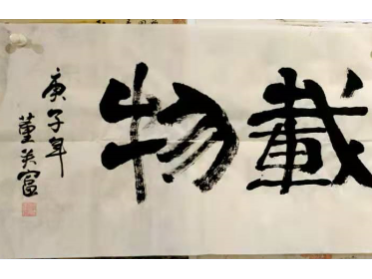 載物
庚子年
董
富